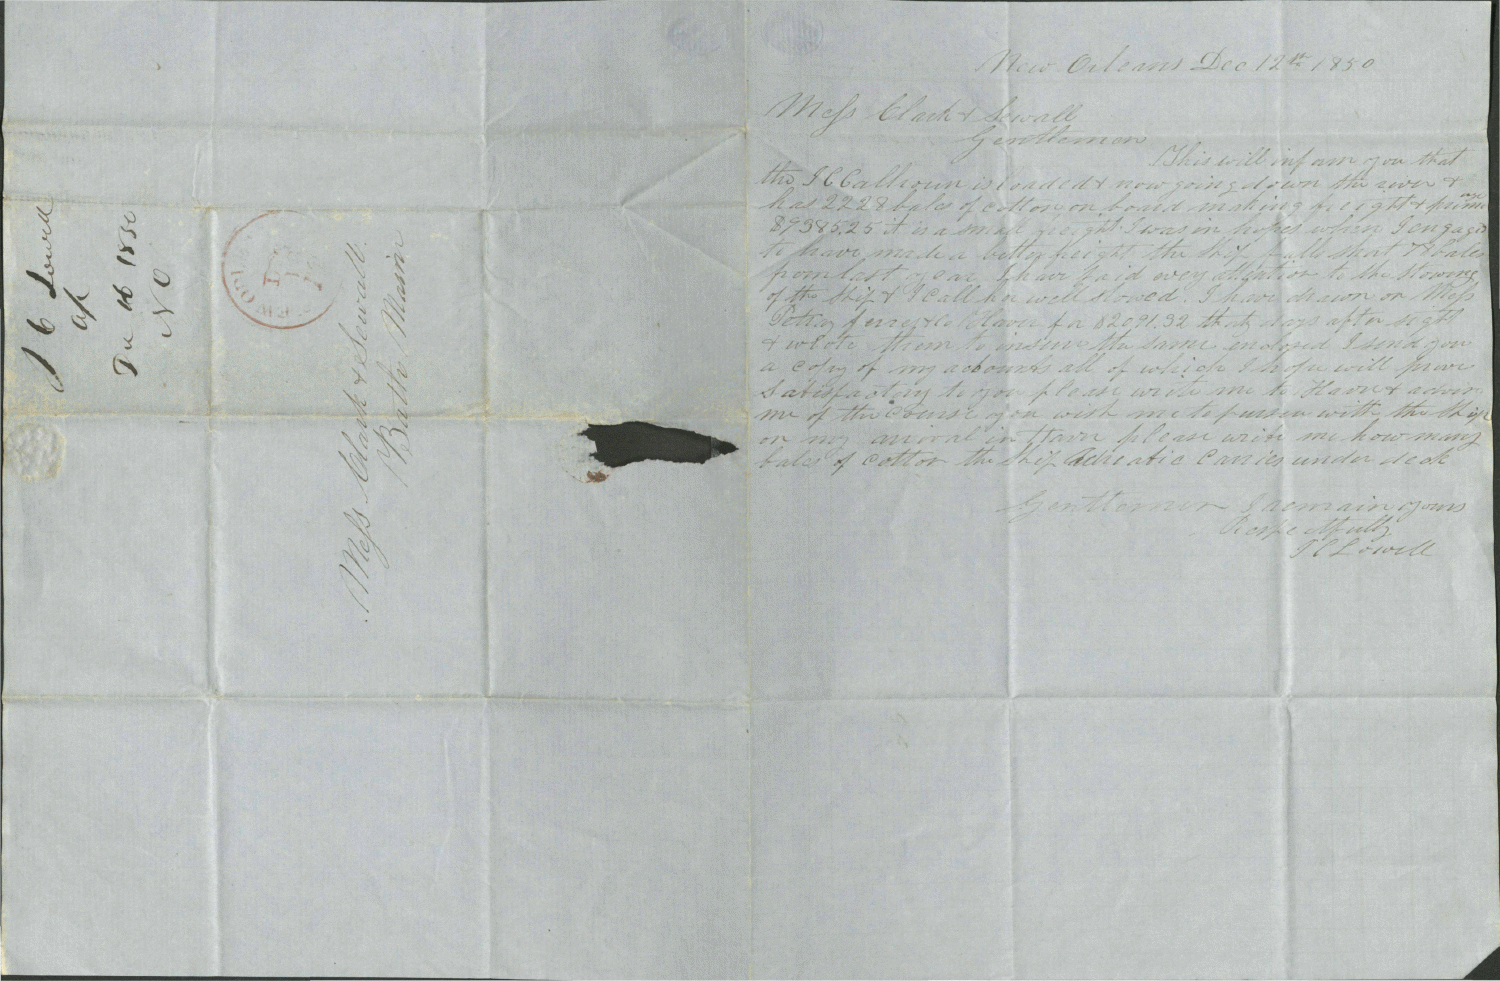 New Orleans Dec 12th 1850
Mess Clark & Sewall
Gentlemen
This will inform you that
the J C Calhoun is loaded & now going down the river &
has 2228 bales of cotton on board making freight &
$9385.25 it is a small freight I was in hopes when I engaged
to have made a better freight the ship falls short bales
from last year I have paid evry attention to the stowing
of the ship & I call her well stowed. I have drawn on Mess
& Co Havre for $2091.32 days after sight
& wrote them to insure the same enclosed I send you
a copy of my accounts all of which I hope will prove
satisfactory to you please write me to Havre & advise
me of the course you wish me to pursue with the ship
on my arrival in Havre please write me how many
bales of cotton the ship Adreatic carries under deck
Gentlemen I remain yours
Respectfully
J C Lowell
J C Lowell
1850
N O
Mess Clark & Sewall
Bath Main
NEW